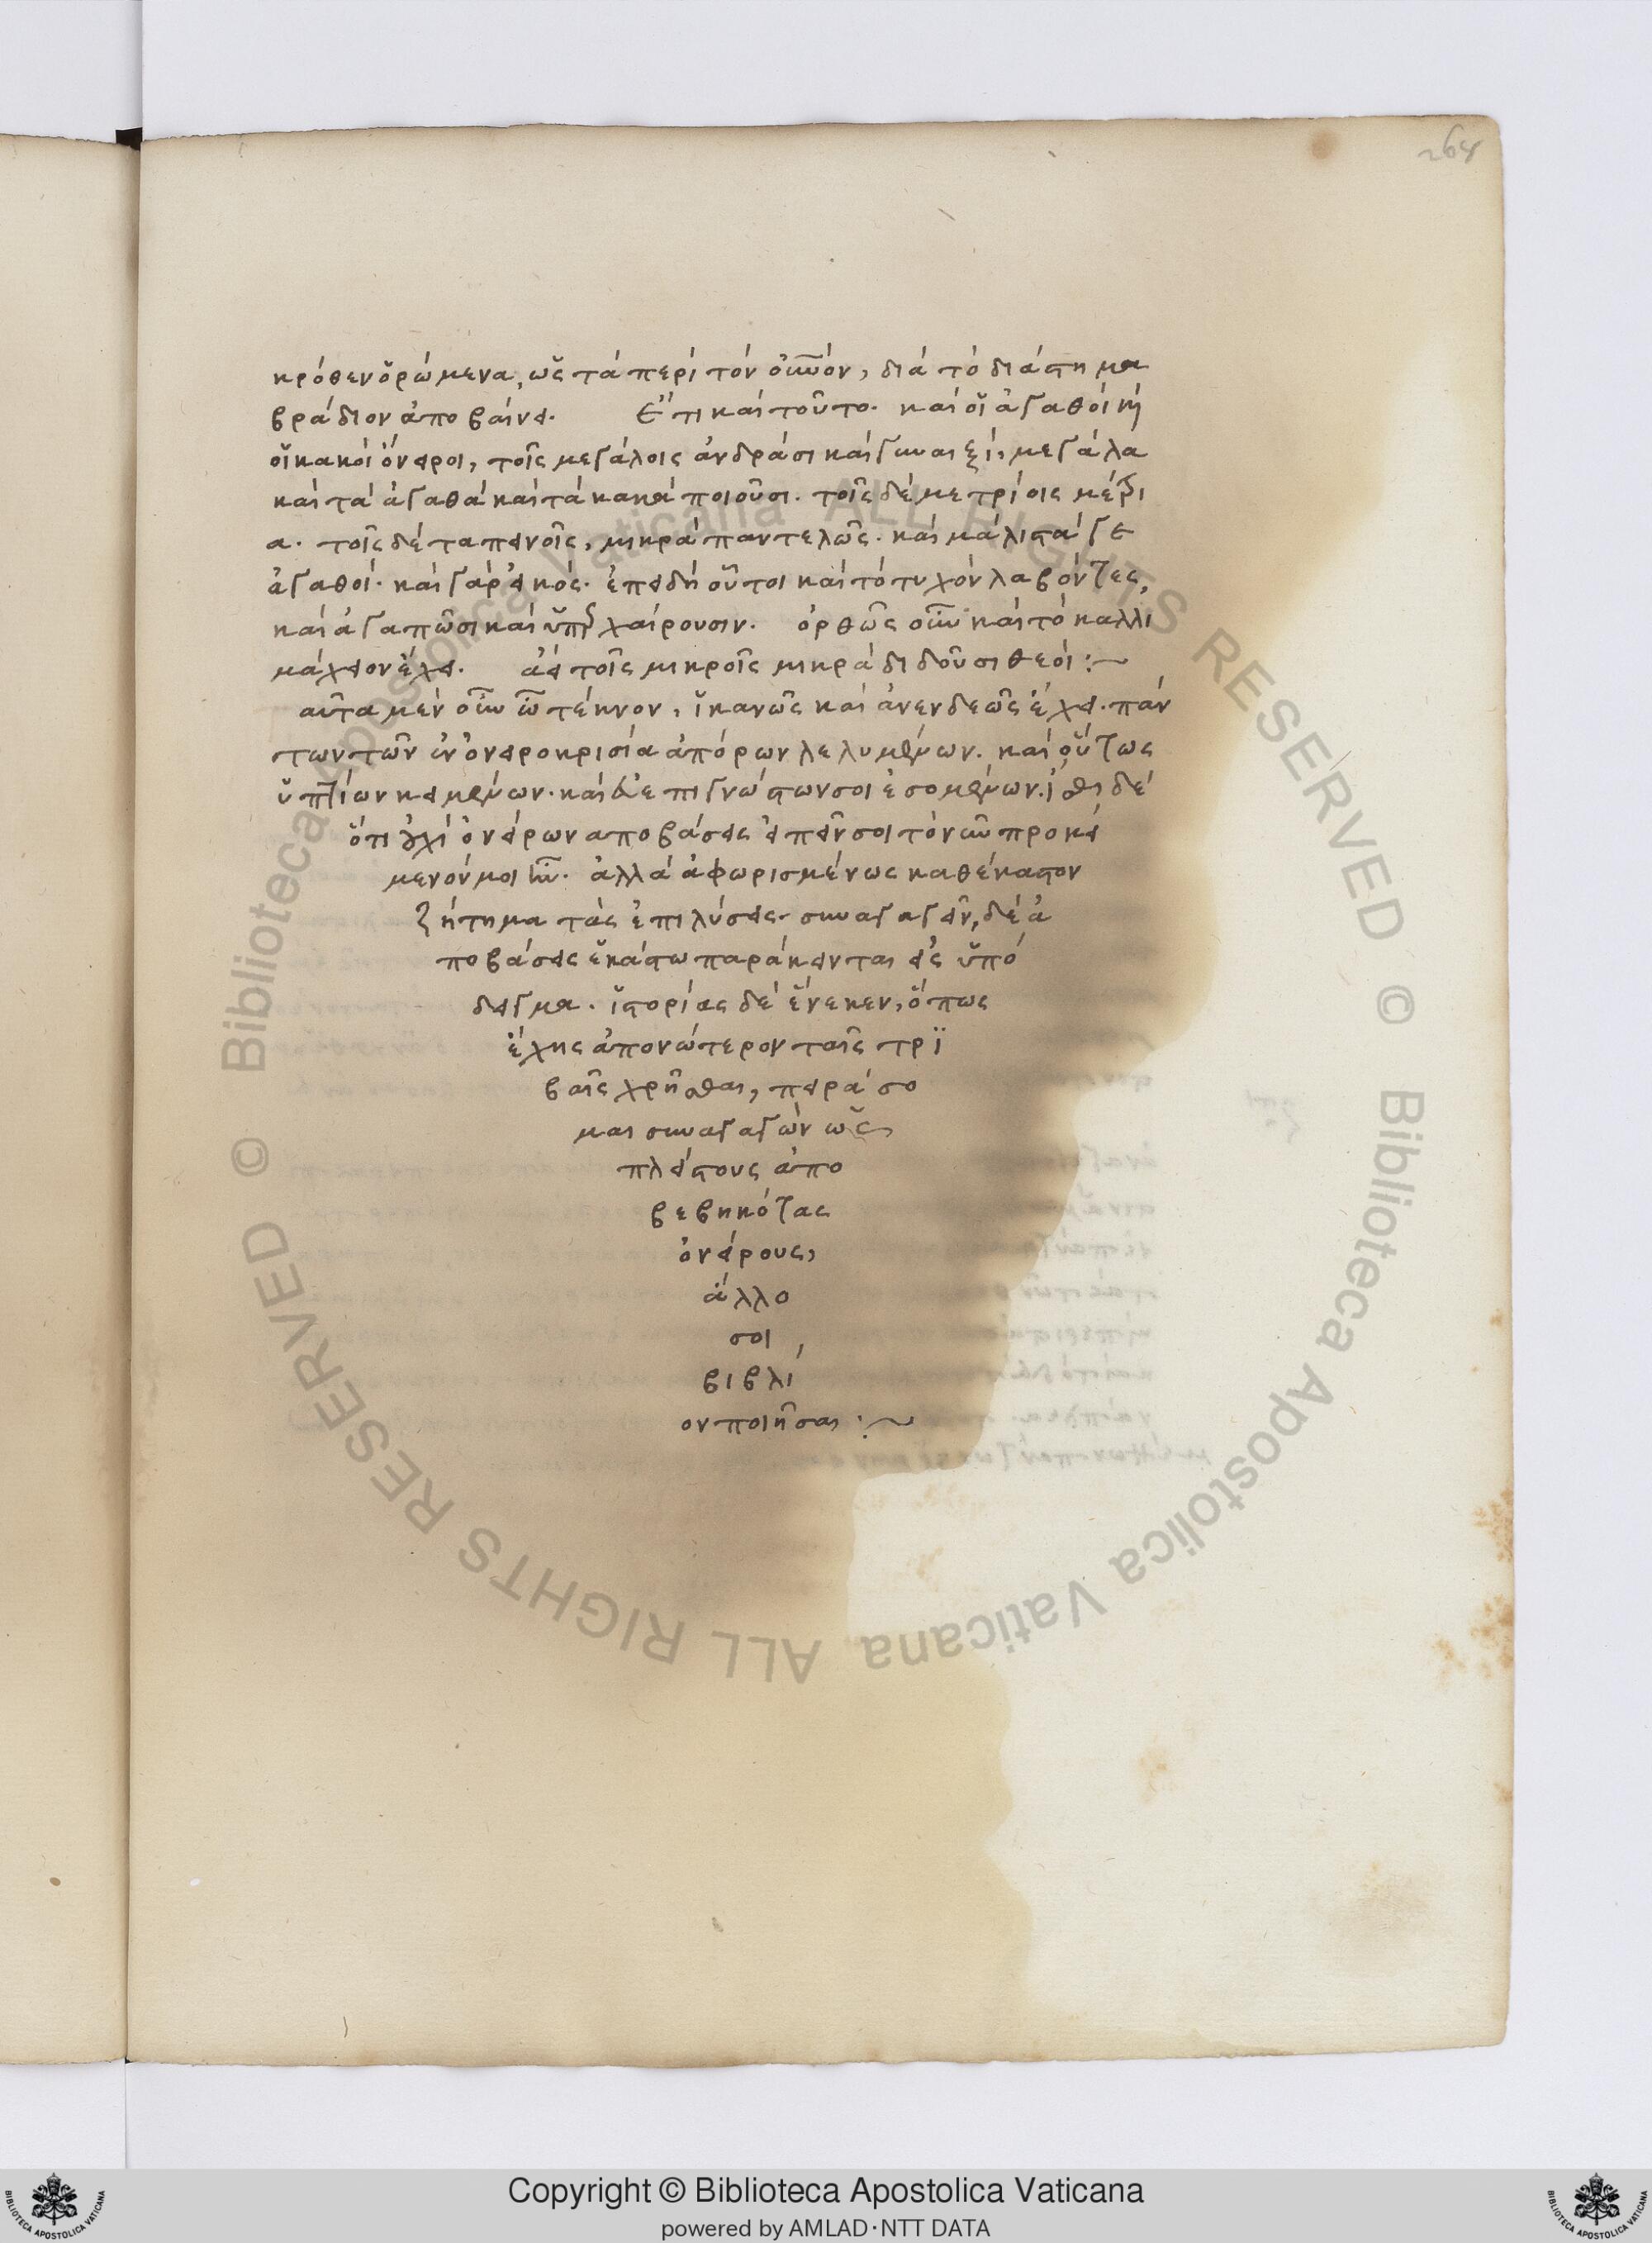 264
κρόθεν ὁρώμενα, ὡς τὰ περὶ τὸν οὐνὸν, διὰ τὸ διάστημα
βράδιον ἀποβαίνει. Ἔτι καὶ τοῦτο. καὶ οἱ ἀγαθοὶ κὴ
οἱ κακοὶ ὄνειροι, τοῖς μεγάλοις ἀνδράσι καὶ γυναιξὶ, μεγάλα
καὶ τὰ ἀγαθὰ καὶ τὰ κακὰ ποιοῦσι. τοῖς δὲ μετρίοις μέτρι
α. τοῖς δὲ ταπεινοῖς, μικρὰ παντελῶς. καὶ μάλιστά γε
ἀγαθοί. καὶ γὰρ εἰκός. ἐπειδὴ οὗτοι καὶ τὸ τυχὸν λαβόντες,
καὶ ἀγαπῶσι καὶ ὑπερχαίρουσιν. ὀρθῶς οὖν καὶ τὸ καλλι
μάχειον ἔχει. ἀεὶ τοῖς μικροῖς μικρὰ διδοῦσι θεοί :~
αὗτα μὲν οὖν ὦ τέκνον, ἱκανῶς καὶ ἀνενδεῶς ἔχει. πάν
των τῶν ἐν ὀνειροκρισία ἀπόρων λελυμένων. καὶ οὕτως
ὑπτίων κειμένων. καὶ εὐεπιγνώστων σοι ἐσομένων. ἴσθι δὲ
ὅτι οὐχὶ ὀνείρων αποβάσεις εἰπεῖν σοι τὸ νῦν προκεί
μενόν μοι ἦν. ἀλλὰ ἀφωρισμένως καθέκαστον
ζήτημα τὰς ἐπιλύσεις. συναγαγεῖν, δὲ ἀ
ποβάσεις ἑκάστω παράκεινται εἰς ὑπό
δειγμα. ἱστορίας δὲ ἕνεκεν, ὅπως
ἔχῃς ἀπονώτερον ταῖς τρϊ
βαῖς χρῆσθαι, πειράσο
μαι συναγαγὼν ὡς
πλείστους ἀπο
βεβηκότας
ὀνείρους,
ἄλλο
σοι
βιβλί
ον ποιῆσαι :~
Copyright © Biblioteca Apostolica Vaticana
powered by AMLAD·NTT DATA
© Biblioteca Apostolica Vaticana ALL RIGHTS RESERVED © Biblioteca Apostolica Vaticana ALL RIGHTS RESERVED
BIBLIOTECA APOSTOLICA VATICANA
BIBLIOTECA APOSTOLICA VATICANA